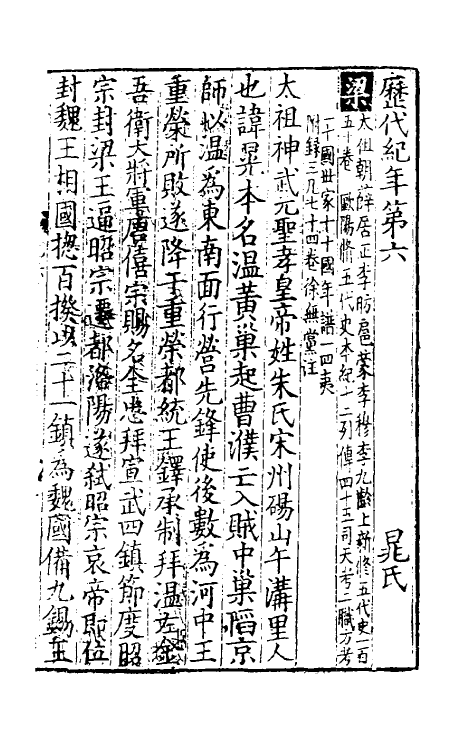 歷代紀年第六
晁氏
梁
太祖朝薛居正李昉扈蒙李穆李九齡上新修五代史一百
五十卷 歐陽脩五代史本紀十二列傳四十五司天考二職方考
一十國世家十十國年譜一四夷
附錄三凡七十四卷徐無黨注
太祖神武元聖孝皇帝姓朱氏宋州碭山午溝里人
也諱晃本名溫黃巢起曹濮亡入賊中巢䧟京
師以溫為東南面行營先鋒使後數為河中王
重榮所敗遂降于重榮都統王鐸承制拜溫左金
吾衛大將軍唐僖宗賜名全忠拜宣武四鎮節度昭
宗封梁王逼昭宗遷都洛陽遂弒昭宗哀帝即位
封魏王相國揔百揆以二十一鎮為魏國備九錫五